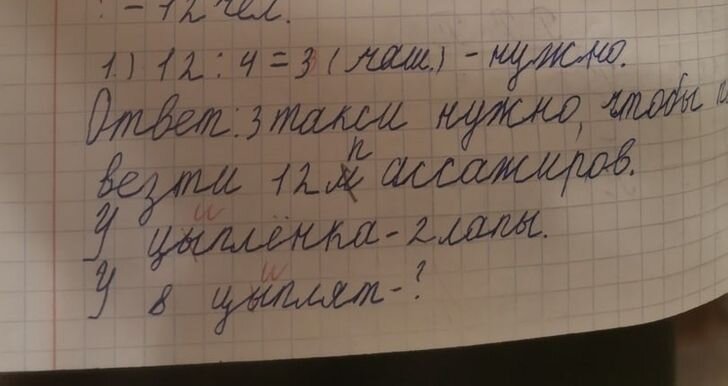 - 12 чел.
1.) 12 : 4 = 3 (маш.) - нужно.
Ответ: 3 такси нужно, чтобы
везти 12 пассажиров.
У цыплёнка - 2 лапы.
У 8 цыплят - ?